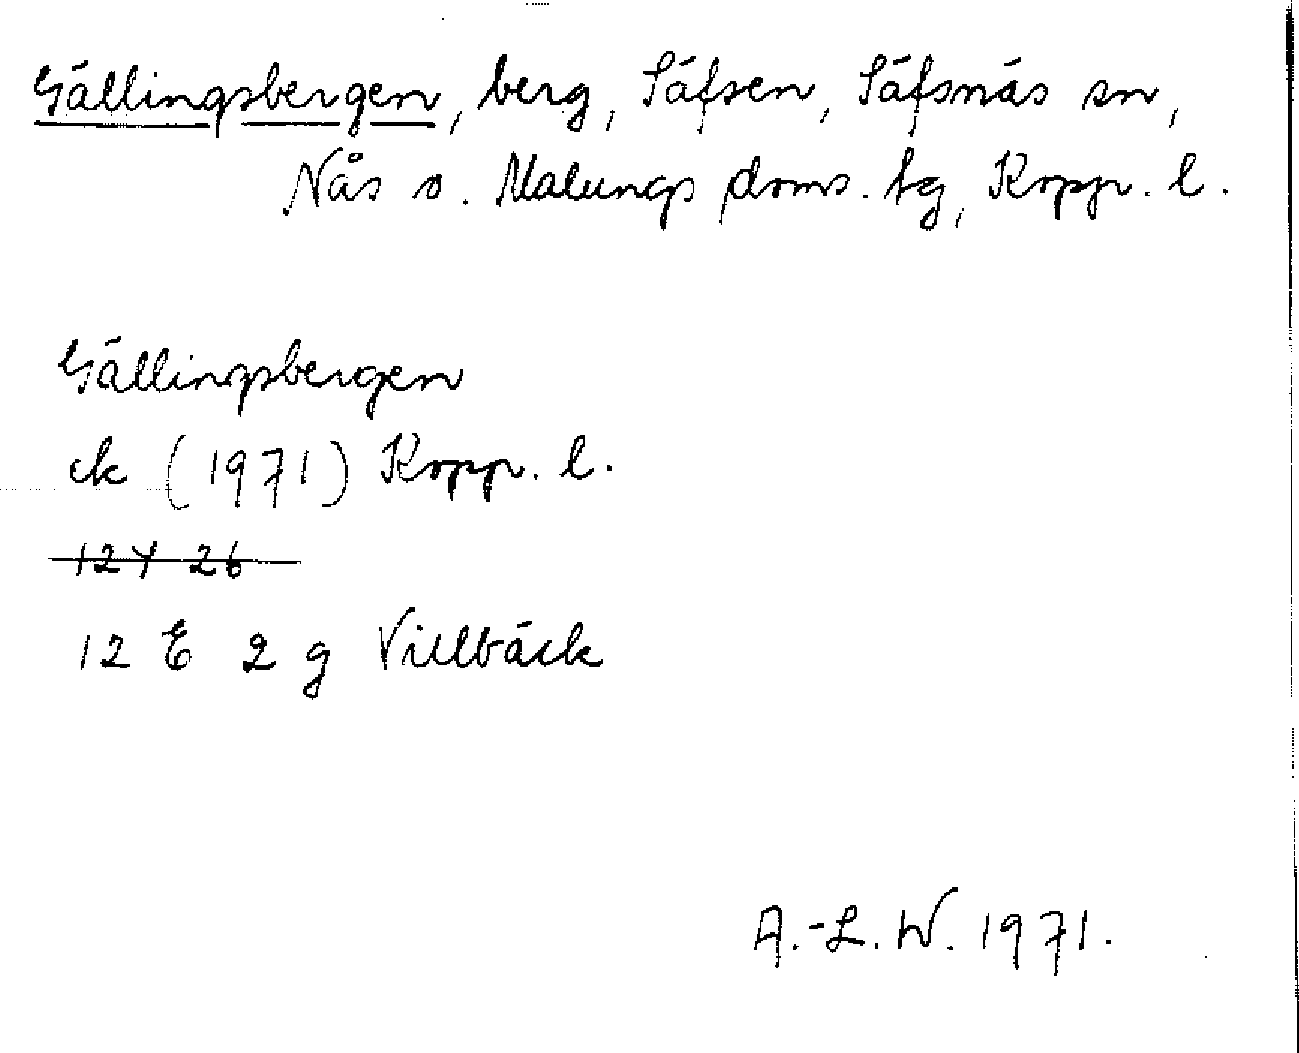 Gällingsbergen, berg, Säfsen, Säfsnäs sn,
Nås o. Malungs doms. tg, Kopp. l.
Gällingsbergen
ek (1971) Kopp. l.
12Y 26
12 E 2 g Villbäck
A.-L. W. 1971.